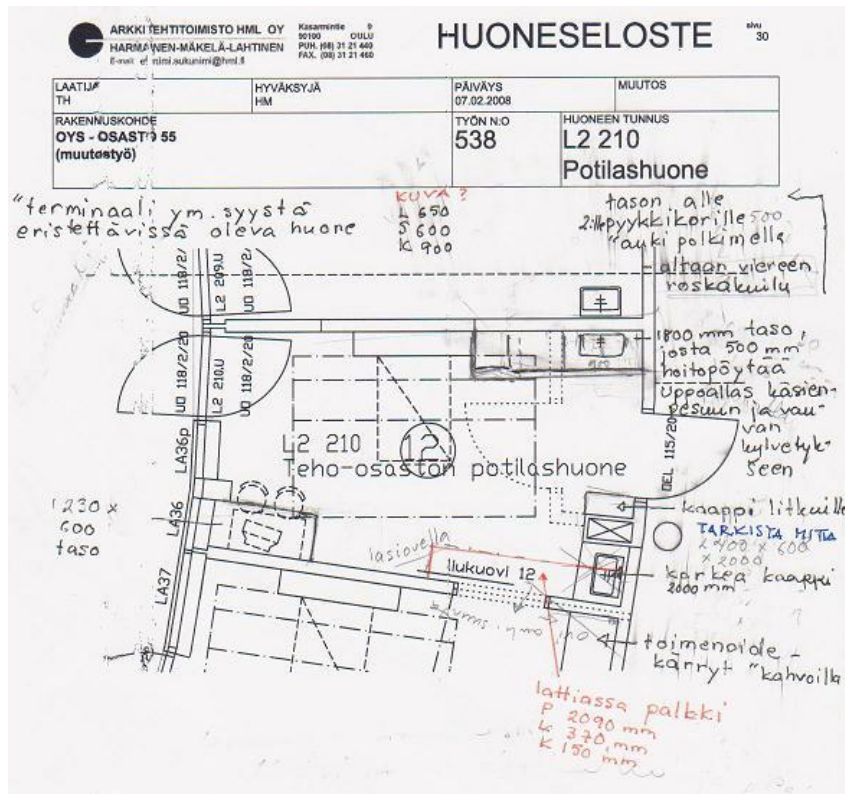 ARKKITEHTITOIMISTO HML OY
HARMAINEN-MÄKELÄ-LAHTINEN
E-mail: etunimi.sukunimi@hml.fi
Kasarmintie 9
90100 OULU
PUH. (08) 31 21 440
FAX. (08) 31 21 460
HUONESELOSTE
sivu
30
LAATIJA
TH
HYVÄKSYJÄ
HM
PÄIVÄYS
07.02.2008
MUUTOS
RAKENNUSKOHDE
OYS - OSASTO 55
(muutostyö)
TYÖN N:O
538
HUONEEN TUNNUS
L2 210
Potilashuone
"terminaali ym. syystä
eristettävissä oleva huone
KUVA?
L 650
S 600
K 900
tason alle
2:lle pyykkikorille 500
"auki polkimella
altaan viereen
roskakuilu
1800 mm taso,
josta 500 mm
hoitopöytää
uppoallas käsien-
pesuun ja vau-
van
kylvetyk-
seen
UO 118/2/
L2 209.U
UO 118/2/
UO 118/2/20
L2 210.U
UO 118/2/20
900
DEL 115/20
L2 210
12
Teho-osaston potilashuone
LA36p
LA36
LA37
1230 x
600
taso
kaappi litkuille
TARKISTA MITTA
2400 x 600
x 2000
lasiovella
liukuovi 12
korkea kaappi
2000 mm
ovi auk. suunta
toimenpide-
kärryt "kahvoilla
lattiassa palkki
P 2090 mm
L 370 mm
K 150 mm